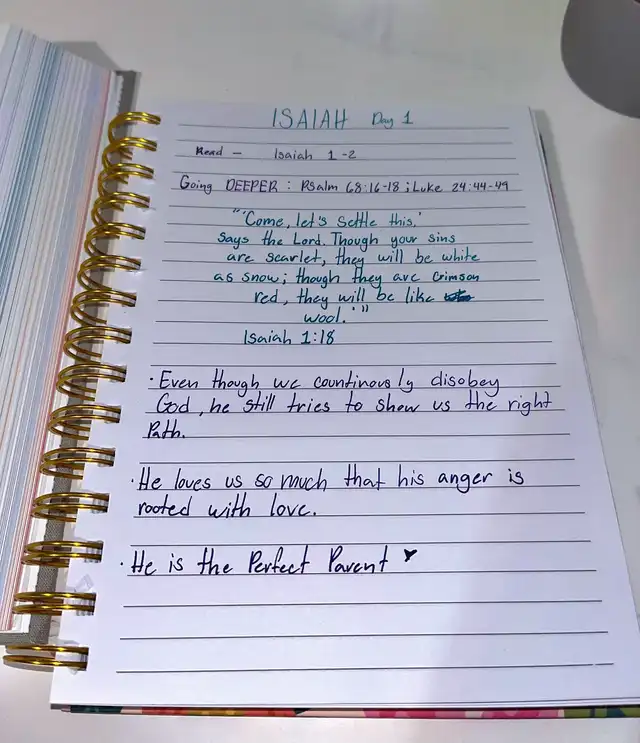 ISAIAH Day 1
Read - Isaiah 1-2
Going DEEPER : Psalm 68:16-18 ; Luke 24:44-49
"'Come, let's settle this,'
says the Lord. Though your sins
are scarlet, they will be white
as snow; though they are crimson
red, they will be like
wool.'"
Isaiah 1:18
· Even though we countinously disobey
God, he still tries to show us the right
Path.
· He loves us so much that his anger is
rooted with love.
· He is the Perfect Parent ♥